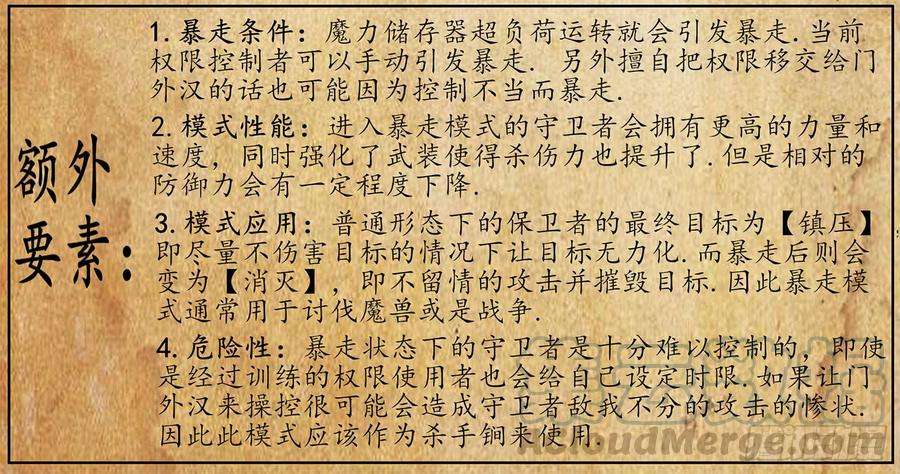 额外
要素：
1. 暴走条件：魔力储存器超负荷运转就会引发暴走.当前
权限控制者可以手动引发暴走. 另外擅自把权限移交给门
外汉的话也可能因为控制不当而暴走.
2. 模式性能：进入暴走模式的守卫者会拥有更高的力量和
速度，同时强化了武装使得杀伤力也提升了.但是相对的
防御力会有一定程度下降.
3. 模式应用：普通形态下的保卫者的最终目标为【镇压】
即尽量不伤害目标的情况下让目标无力化.而暴走后则会
变为【消灭】，即不留情的攻击并摧毁目标.因此暴走模
式通常用于讨伐魔兽或是战争.
4. 危险性：暴走状态下的守卫者是十分难以控制的，即使
是经过训练的权限使用者也会给自己设定时限.如果让门
外汉来操控很可能会造成守卫者敌我不分的攻击的惨状.
因此此模式应该作为杀手锏来使用.
AcloudMerge.com